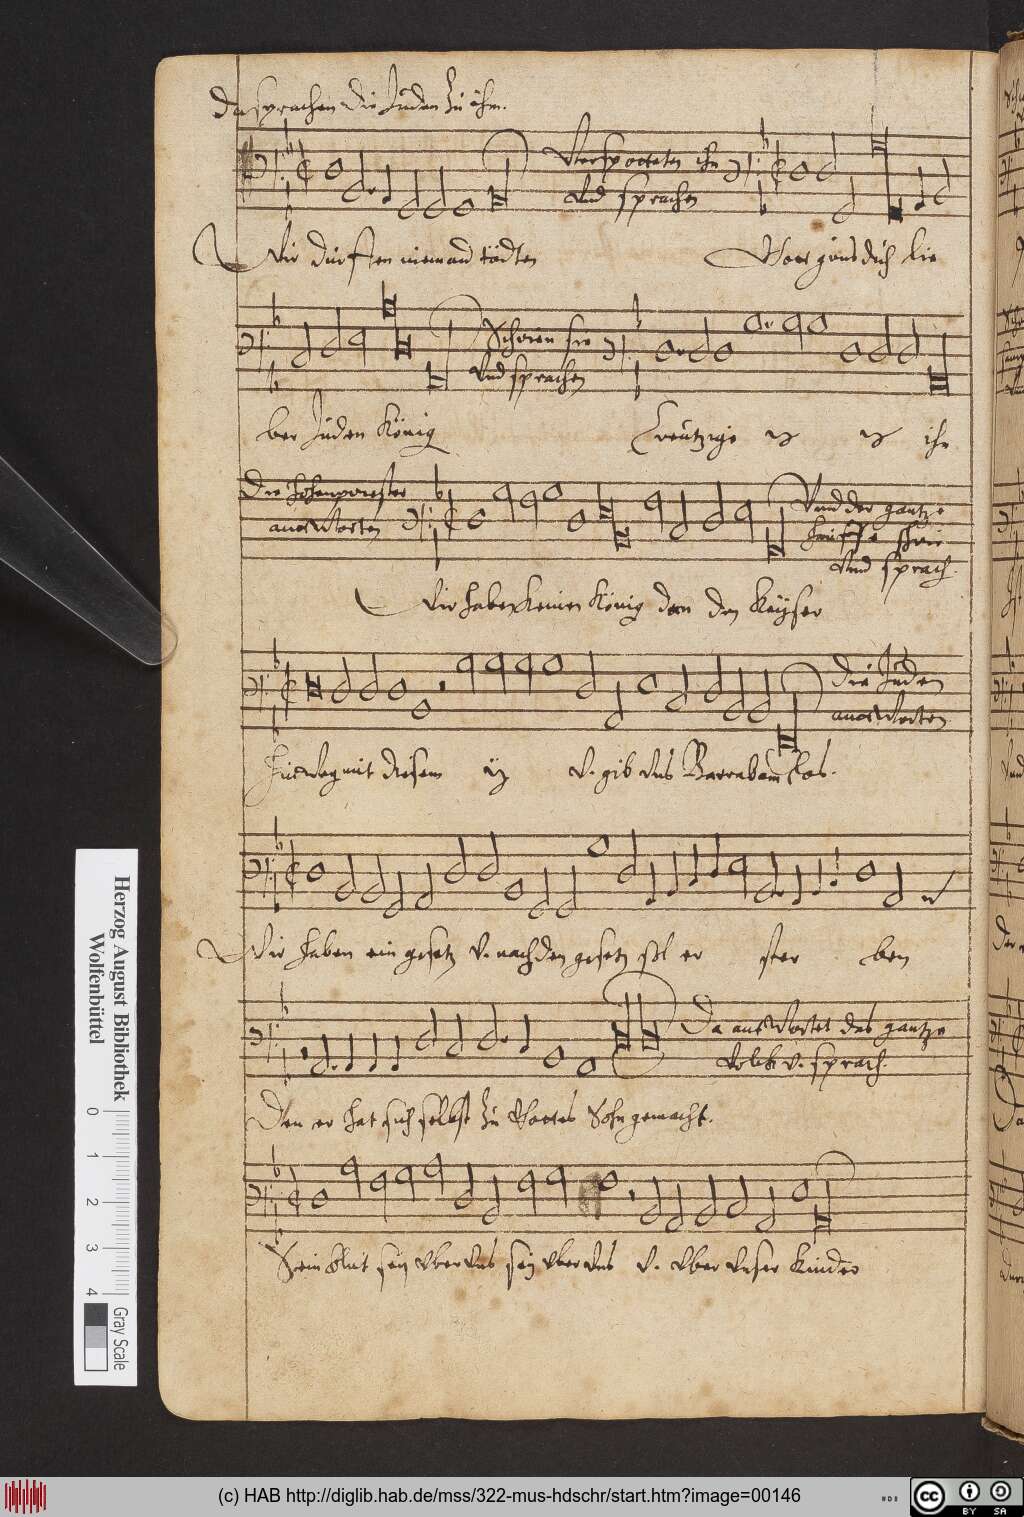 Da sprachen die Juden zu ihm.
Verspotteten ihn
Und sprachen
Wir dürffen niemand tödten
Gott grüs dich lie
Schrien sie
Und sprachen
ber Juden König
Creutzige ij ij ihn
Die Hohenpriester
antworten
Und der gantze
Hauffe schrie
Und sprach.
Wir haben keinen König denn den Keyser
Die Juden
antworten
Hinweg mit diesem ij v. gib uns Barrabam los.
Wir haben ein gesetz v. nach den gesetz sol er ster ben
Da antwortet das gantze
Volck v. sprach.
Den er hat sich selbst zu Gottes Sohn gemacht.
Sein blut sey uber uns sey uber uns v. uber unser kinder
Herzog August Bibliothek
Wolfenbüttel
0 1 2 3 4
Gray Scale
(c) HAB http://diglib.hab.de/mss/322-mus-hdschr/start.htm?image=00146
CC BY SA